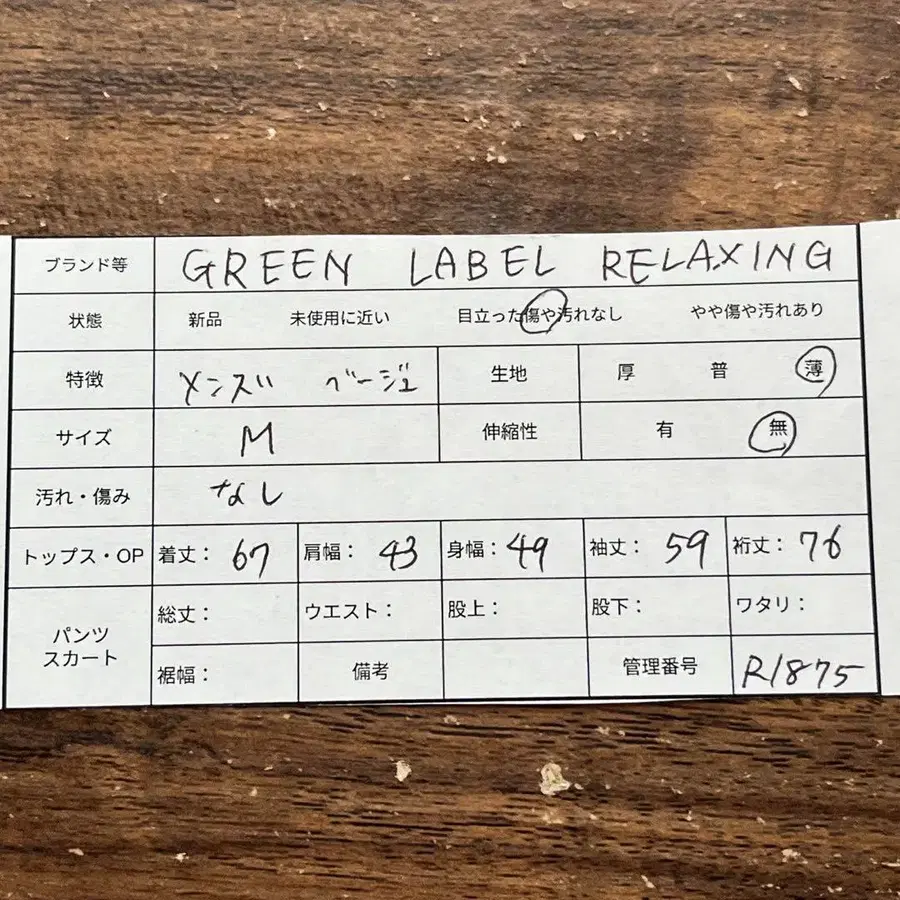 ブランド等 GREEN LABEL RELAXING
状態 新品 未使用に近い 目立った傷や汚れなし やや傷や汚れあり
特徴 メンズ ベージュ 生地 厚 普 薄
サイズ M 伸縮性 有 無
汚れ・傷み なし
トップス・OP 着丈: 67 肩幅: 43 身幅: 49 袖丈: 59 裄丈: 76
パンツ スカート 総丈: ウエスト: 股上: 股下: ワタリ:
裾幅: 備考 管理番号 R1875